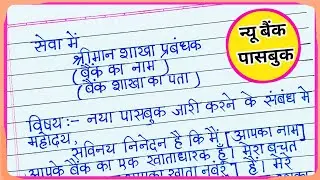 सेवा में
श्रीमान शाखा प्रबंधक
(बैंक का नाम)
(बैंक शाखा का पता)
न्यू बैंक
पासबुक
विषय:- नया पासबुक जारी करने के संबंध मे
महोदय,
सविनय निनेदन है कि मैं [आपका नाम]
आपके बैंक का एक खाताधारक हूँ। मेरा बचत
आपका खाता नंबर है। मेरे